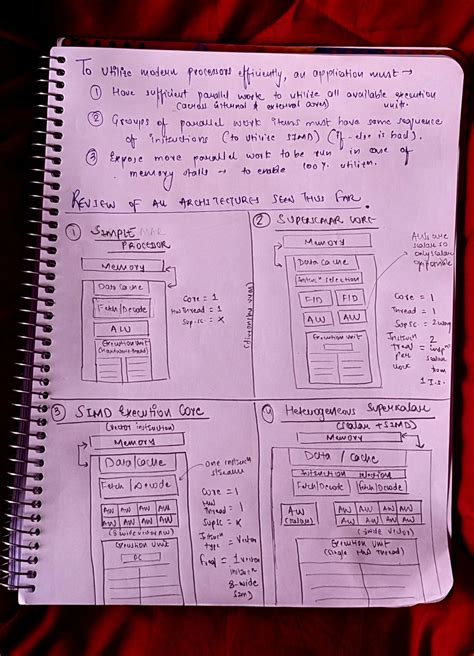 To utilise modern processors efficiently, an application must →
① Have sufficient parallel work to utilise all available execution units.
(across internal & external ares)
② Groups of parallel work items must have same sequence
of instructions (to utilise SIMD) (if-else is bad).
③ Expose more parallel work to be run in case of
memory stalls → to enable 100% utilisn.
REVIEW OF ALL ARCHITECTURES SEEN THUS FAR.
① SIMPLE
PROCESSOR
Memory
Data Cache
Fetch/Decode
ALU
Execution Unit
Core = 1
HW Thread = 1
Sup.sc = X
② SUPERSCALAR CORE
Memory
Data Cache
F/D F/D
ALU ALU
Execution Unit
ALUs are
scalar so
only scalar
Core = 1
Thread = 1
Supsc = 2 way
③ SIMD Execution Core
(vector instruction)
Memory
Data/Cache
Fetch/Decode
ALU ALU ALU ALU
ALU ALU ALU ALU
(8 wide vector ALU)
Execution Unit
one instrucn
stream
Core = 1
HW
Thread = 1
Supsc = X
Instrucn
type = Vector
8-wide
SIMD)
④ Heterogeneous Superscalar
(scalar + SIMD)
Memory
Data / Cache
Instruction selection
Fetch/Decode Fetch/Decode
ALU
(scalar)
ALU ALU ALU ALU
ALU ALU ALU ALU
(8-wide vector)
Execution Unit
(Single HW Thread)